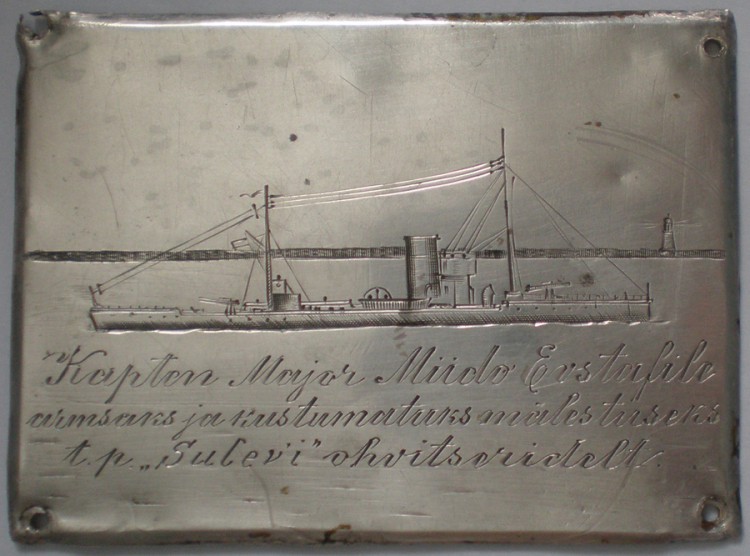 Kapten Major Miido Evstafile
armsaks ja kustumatuks mälestuseks
t.p. „Sulev'i" ohvitseridelt.